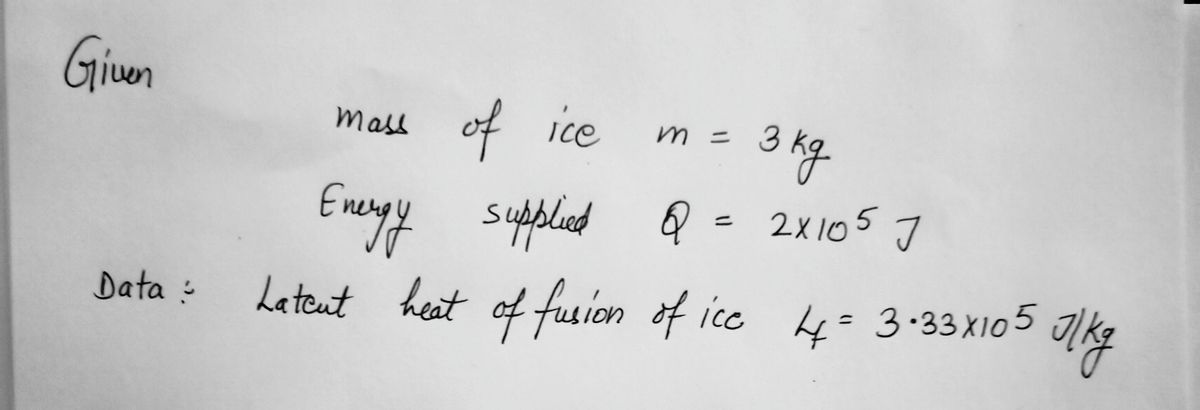 Given
mass of ice m = 3 kg
Energy supplied Q = 2x10⁵ J
Data :- Latent heat of fusion of ice Lf = 3.33x10⁵ J/kg